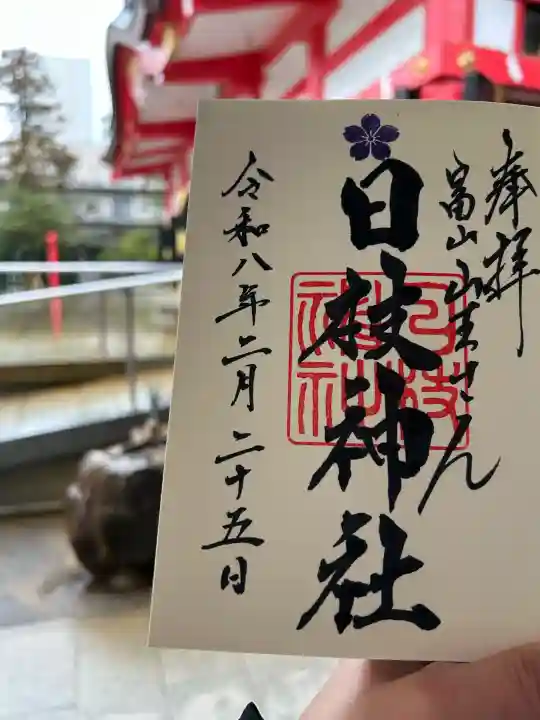 奉拝
富山山王さん
日枝神社
日枝神社
令和八年二月二十五日